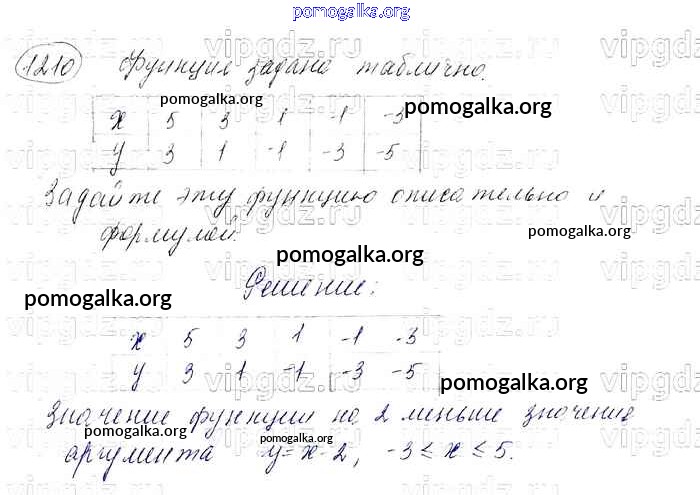 pomogalka.org
1210 Функция задана таблично.
pomogalka.org pomogalka.org
x 5 3 1 -1 -3
y 3 1 -1 -3 -5
Задайте эту функцию описательно и
формулой.
pomogalka.org
pomogalka.org
pomogalka.org
Решение:
x 5 3 1 -1 -3
y 3 1 -1 -3 -5
pomogalka.org
Значение функции на 2 меньше значения
pomogalka.org
аргумента y = x - 2, -3 ≤ x ≤ 5.
vipgdz.ru